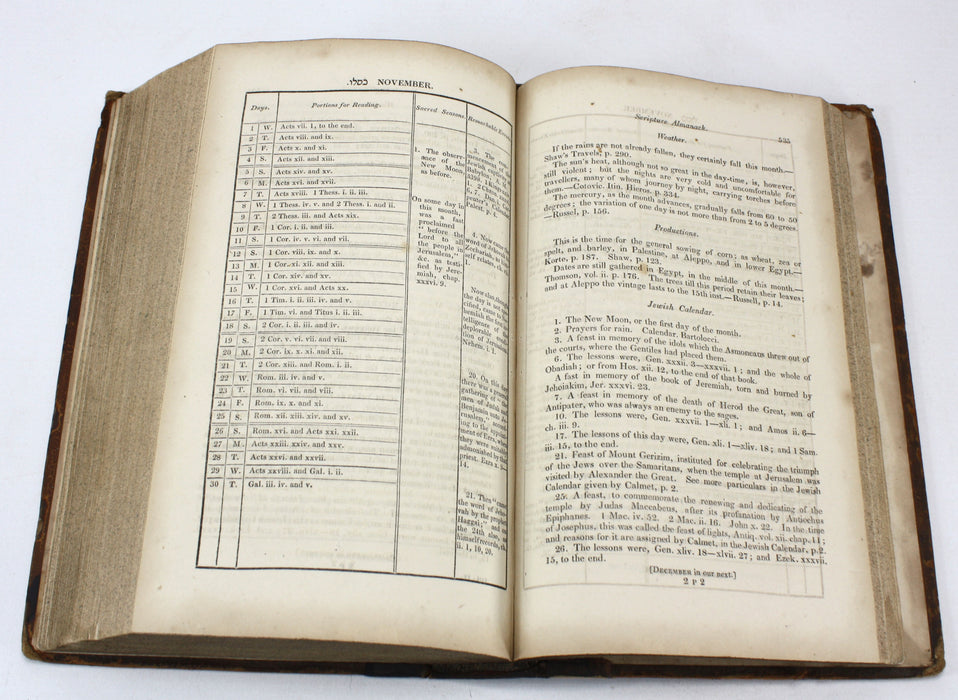 כסלו. NOVEMBER.
Days.
Portions for Reading.
Sacred Seasons.
1 W. Acts vii. 1, to the end.
2 T. Acts viii. and ix.
3 F. Acts x. and xi.
4 S. Acts xii. and xiii.
5 S. Acts xiv. and xv.
6 M. Acts xvi. and xvii.
7 T. Acts xviii. 1 Thess. i. ii. iii.
8 W. 1 Thess. iv. v. and 2 Thess. i. and ii.
9 T. 2 Thess. iii. and Acts xix.
10 F. 1 Cor. i. ii. and iii.
11 S. 1 Cor. iv. v. vi. and vii.
12 S. 1 Cor. viii. ix. and x.
13 M. 1 Cor. xi. xii. and xiii.
14 T. 1 Cor. xiv. and xv.
15 W. 1 Cor. xvi. and Acts xx.
16 T. 1 Tim. i. ii. iii. iv. and v.
17 F. 1 Tim. vi. and Titus i. ii. iii.
18 S. 2 Cor. i. ii. iii. and iv.
19 S. 2 Cor. v. vi. vii. and viii.
20 M. 2 Cor. ix. x. xi. and xii.
21 T. 2 Cor. xiii. and Rom. i. ii.
22 W. Rom. iii. iv. and v.
23 T. Rom. vi. vii. and viii.
24 F. Rom. ix. x. and xi.
25 S. Rom. xii. xiii. xiv. and xv.
26 S. Rom. xvi. and Acts xxi. xxii.
27 M. Acts xxiii. xxiv. and xxv.
28 T. Acts xxvi. and xxvii.
29 W. Acts xxviii. and Gal. i. ii.
30 T. Gal. iii. iv. and v.
1. The observ-
ance of the
New Moon,
as before.
On some day in
this month,
was a fast
proclaimed
"before the
Lord to all
the people in
Jerusalem,"
&c. as testi-
fied by Jere-
miah, chap.
xxxvi. 9.
Scripture Almanack. 535
Weather.
If the rains are not already fallen, they certainly fall this month.—
Shaw's Travels, p. 290.
The sun's heat, although not so great in the day-time, is, however,
still violent; but the nights are very cold and uncomfortable for
travellers, many of whom journey by night, carrying torches before
them.—Cotovic. Itin. Hieros. p. 334.
The mercury, as the month advances, gradually falls from 60 to 50
degrees; the variation of one day is not more than from 2 to 5 degrees.
—Russel, p. 156.
Productions.
This is the time for the general sowing of corn; as wheat, zea or
spelt, and barley, in Palestine, at Aleppo, and in lower Egypt.—
Korte, p. 187. Shaw, p. 123.
Dates are still gathered in Egypt, in the middle of this month.—
Thomson, vol. ii. p. 176. The trees till this period retain their leaves;
and at Aleppo the vintage lasts to the 15th inst.—Russell, p. 14.
Jewish Calendar.
1. The New Moon, or the first day of the month.
2. Prayers for rain. Calendar. Bartolocci.
3. A feast in memory of the idols which the Asmoneans threw out of
the courts, where the Gentiles had placed them.
6. The lessons were, Gen. xxxii. 3—xxxvii. 1; and the whole of
Obadiah; or from Hos. xii. 12, to the end of that book.
A fast in memory of the book of Jeremiah, torn and burned by
Jehoiakim, Jer. xxxvi. 23.
7. A feast in memory of the death of Herod the Great, son of
Antipater, who was always an enemy to the sages.
10. The lessons were, Gen. xxxvii. 1—xli. 1; and Amos ii. 6—
ch. iii. 9.
17. The lessons of this day were, Gen. xli. 1—xliv. 18; and 1 Sam.
iii. 15, to the end.
21. Feast of Mount Gerizim, instituted for celebrating the triumph
of the Jews over the Samaritans, when the temple at Jerusalem was
visited by Alexander the Great. See more particulars in the Jewish
Calendar given by Calmet, p. 2.
25. A feast, to commemorate the renewing and dedicating of the
temple by Judas Maccabeus, after its profanation by Antiochus
Epiphanes. 1 Mac. iv. 52. 2 Mac. ii. 16. John x. 22. In the time
of Josephus, this was called the feast of lights, Antiq. vol. xii. chap. 11;
and reasons for it are assigned by Calmet, in the Jewish Calendar, p. 2.
26. The lessons were, Gen. xliv. 18—xlvii. 27; and Ezek. xxxvii.
15, to the end.
[DECEMBER in our next.]
2 P 2